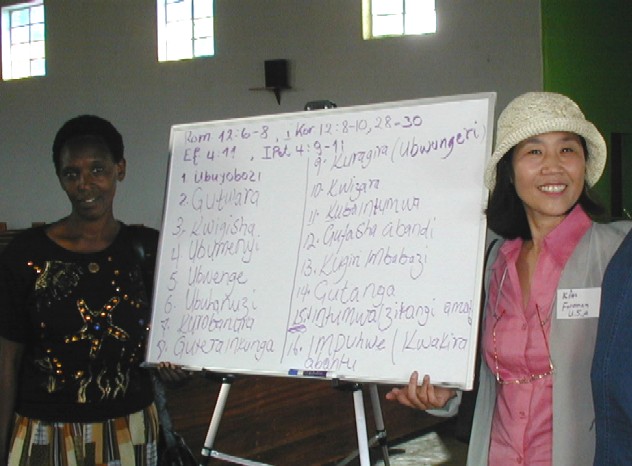 Rom. 12:6-8, 1 Kor 12:8-10, 28-30
Ef 4:11, I Pet. 4:9-11
1. Ubuyobozi
2. Gutwara
3. Kwigisha
4. Ubumenyi
5. Ubwenge
6. Ubuhanuzi
7. Kumbamoza
8. Guterainkunga
9. Kuragira (Ubwungeri)
10. Kwizera
11. Kubaintumwa
12. Gufasha abandi
13. Kugirimbabazi
14. Gutanga
15.
16. Impuhwe (Kwakira
abantu
Kim
Foreman
U.S.A